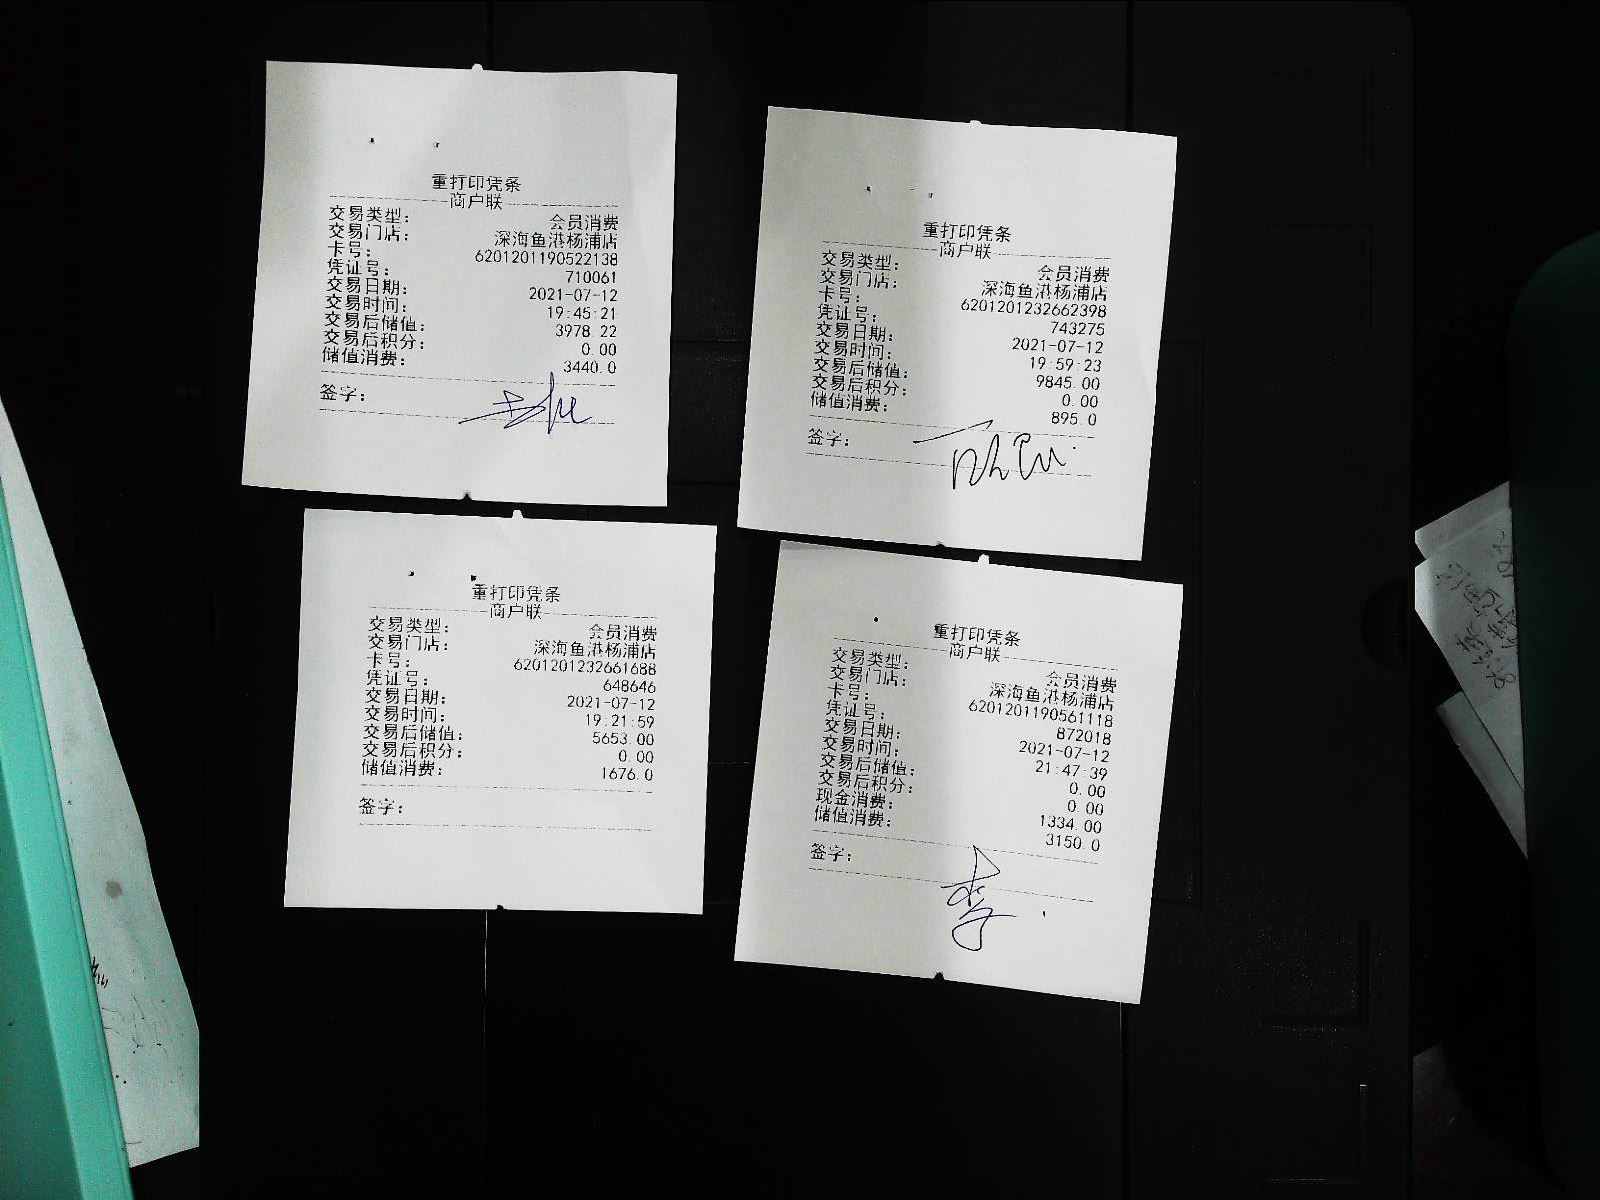 重打印凭条
商户联
交易类型: 会员消费
交易门店: 深海鱼港杨浦店
卡号: 6201201190522138
凭证号: 710061
交易日期: 2021-07-12
交易时间: 19:45:21
交易后储值: 3978.22
交易后积分: 0.00
储值消费: 3440.0
签字:
重打印凭条
商户联
交易类型: 会员消费
交易门店: 深海鱼港杨浦店
卡号: 6201201232662398
凭证号: 743275
交易日期: 2021-07-12
交易时间: 19:59:23
交易后储值: 9845.00
交易后积分: 0.00
储值消费: 895.0
签字:
重打印凭条
商户联
交易类型: 会员消费
交易门店: 深海鱼港杨浦店
卡号: 6201201232661688
凭证号: 648646
交易日期: 2021-07-12
交易时间: 19:21:59
交易后储值: 5653.00
交易后积分: 0.00
储值消费: 1676.0
签字:
重打印凭条
商户联
交易类型: 会员消费
交易门店: 深海鱼港杨浦店
卡号: 6201201190561118
凭证号: 872018
交易日期: 2021-07-12
交易时间: 21:47:39
交易后储值: 0.00
交易后积分: 0.00
现金消费: 1334.00
储值消费: 3150.0
签字: 李